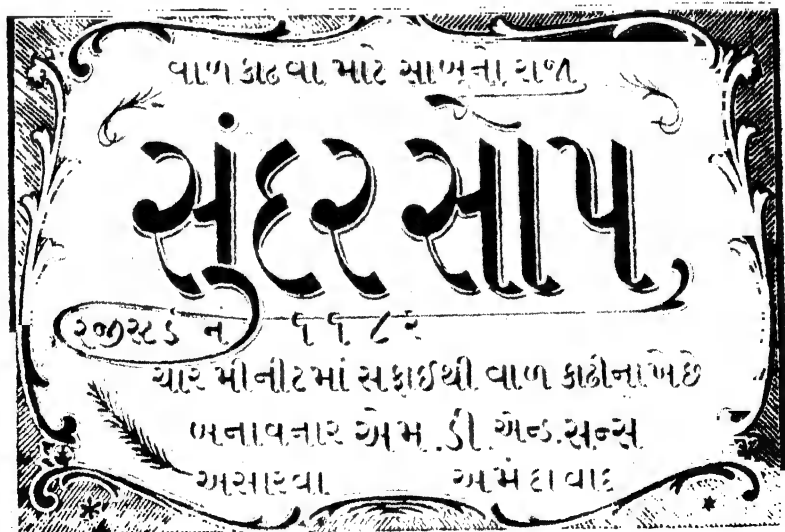 વાળ કાઢવા માટે સાબુનો રાજા
સુંદર સોપ
રજીસ્ટર્ડ નં ૧૧૮૨
ચાર મીનીટમાં સફાઈથી વાળ કાઢીનાખેછે
બનાવનાર એમ.ડી.એન્ડ.સન્સ
અસારવા અમદાવાદ